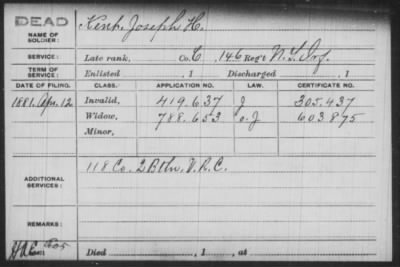 DEAD
NAME OF SOLDIER: Kent, Joseph H.
SERVICE: Late rank, Co. C, 146 Reg't N.Y. Inf.
TERM OF SERVICE: Enlisted , 1 Discharged , 1
DATE OF FILING. CLASS. APPLICATION NO. LAW. CERTIFICATE NO.
1881. Apr. 12 Invalid, 419.637 J 305.437
Widow, 788.653 o.J 603875
Minor,
ADDITIONAL SERVICES: 118 Co. 2 Btln. V.R.C.
REMARKS:
Died , 1 , at